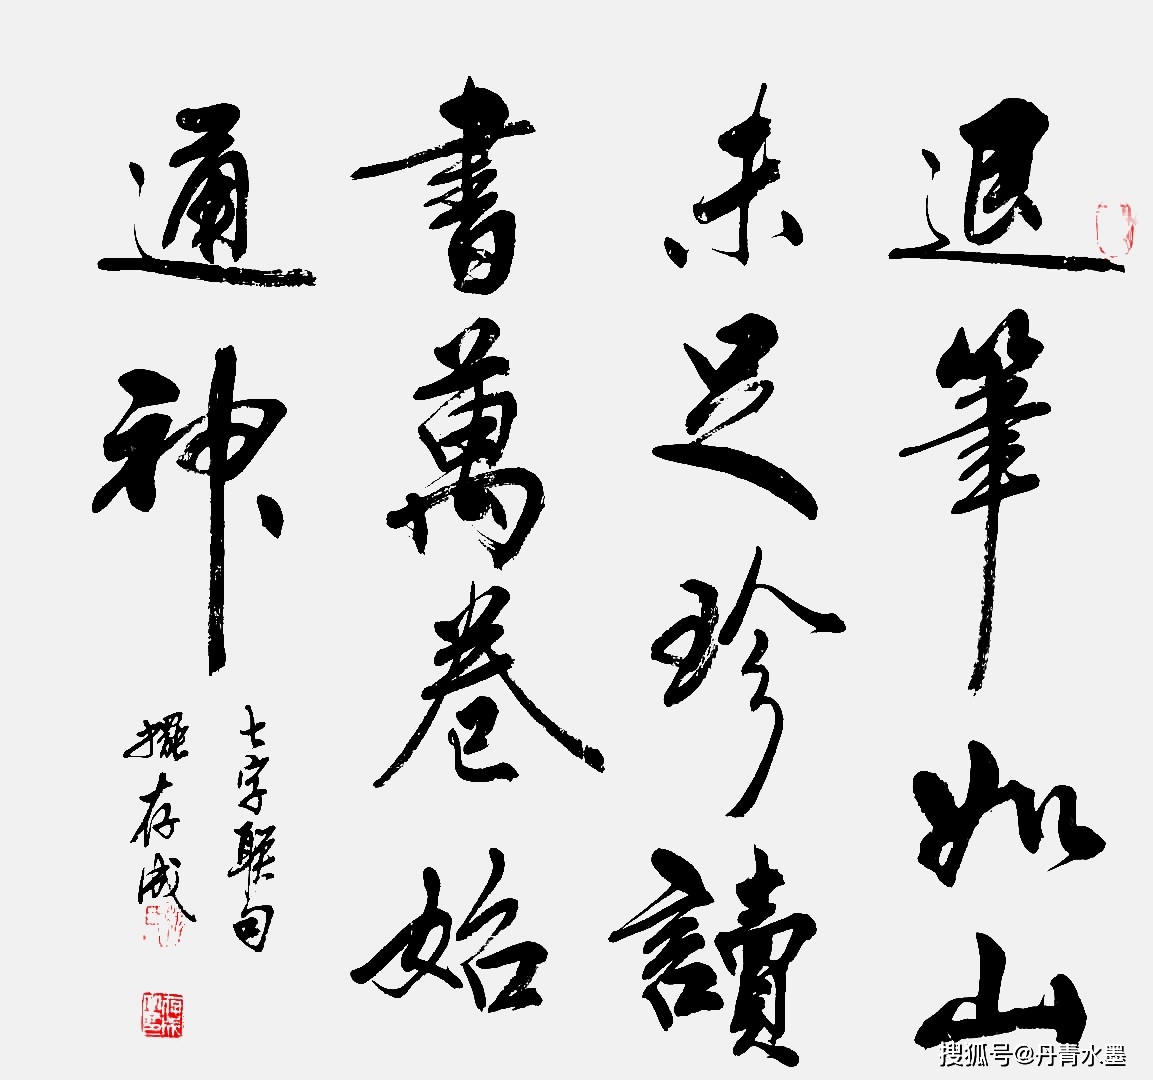 退筆如山
未足珍讀
書萬卷始
通神
七字聯句
存成
搜狐号@丹青水墨